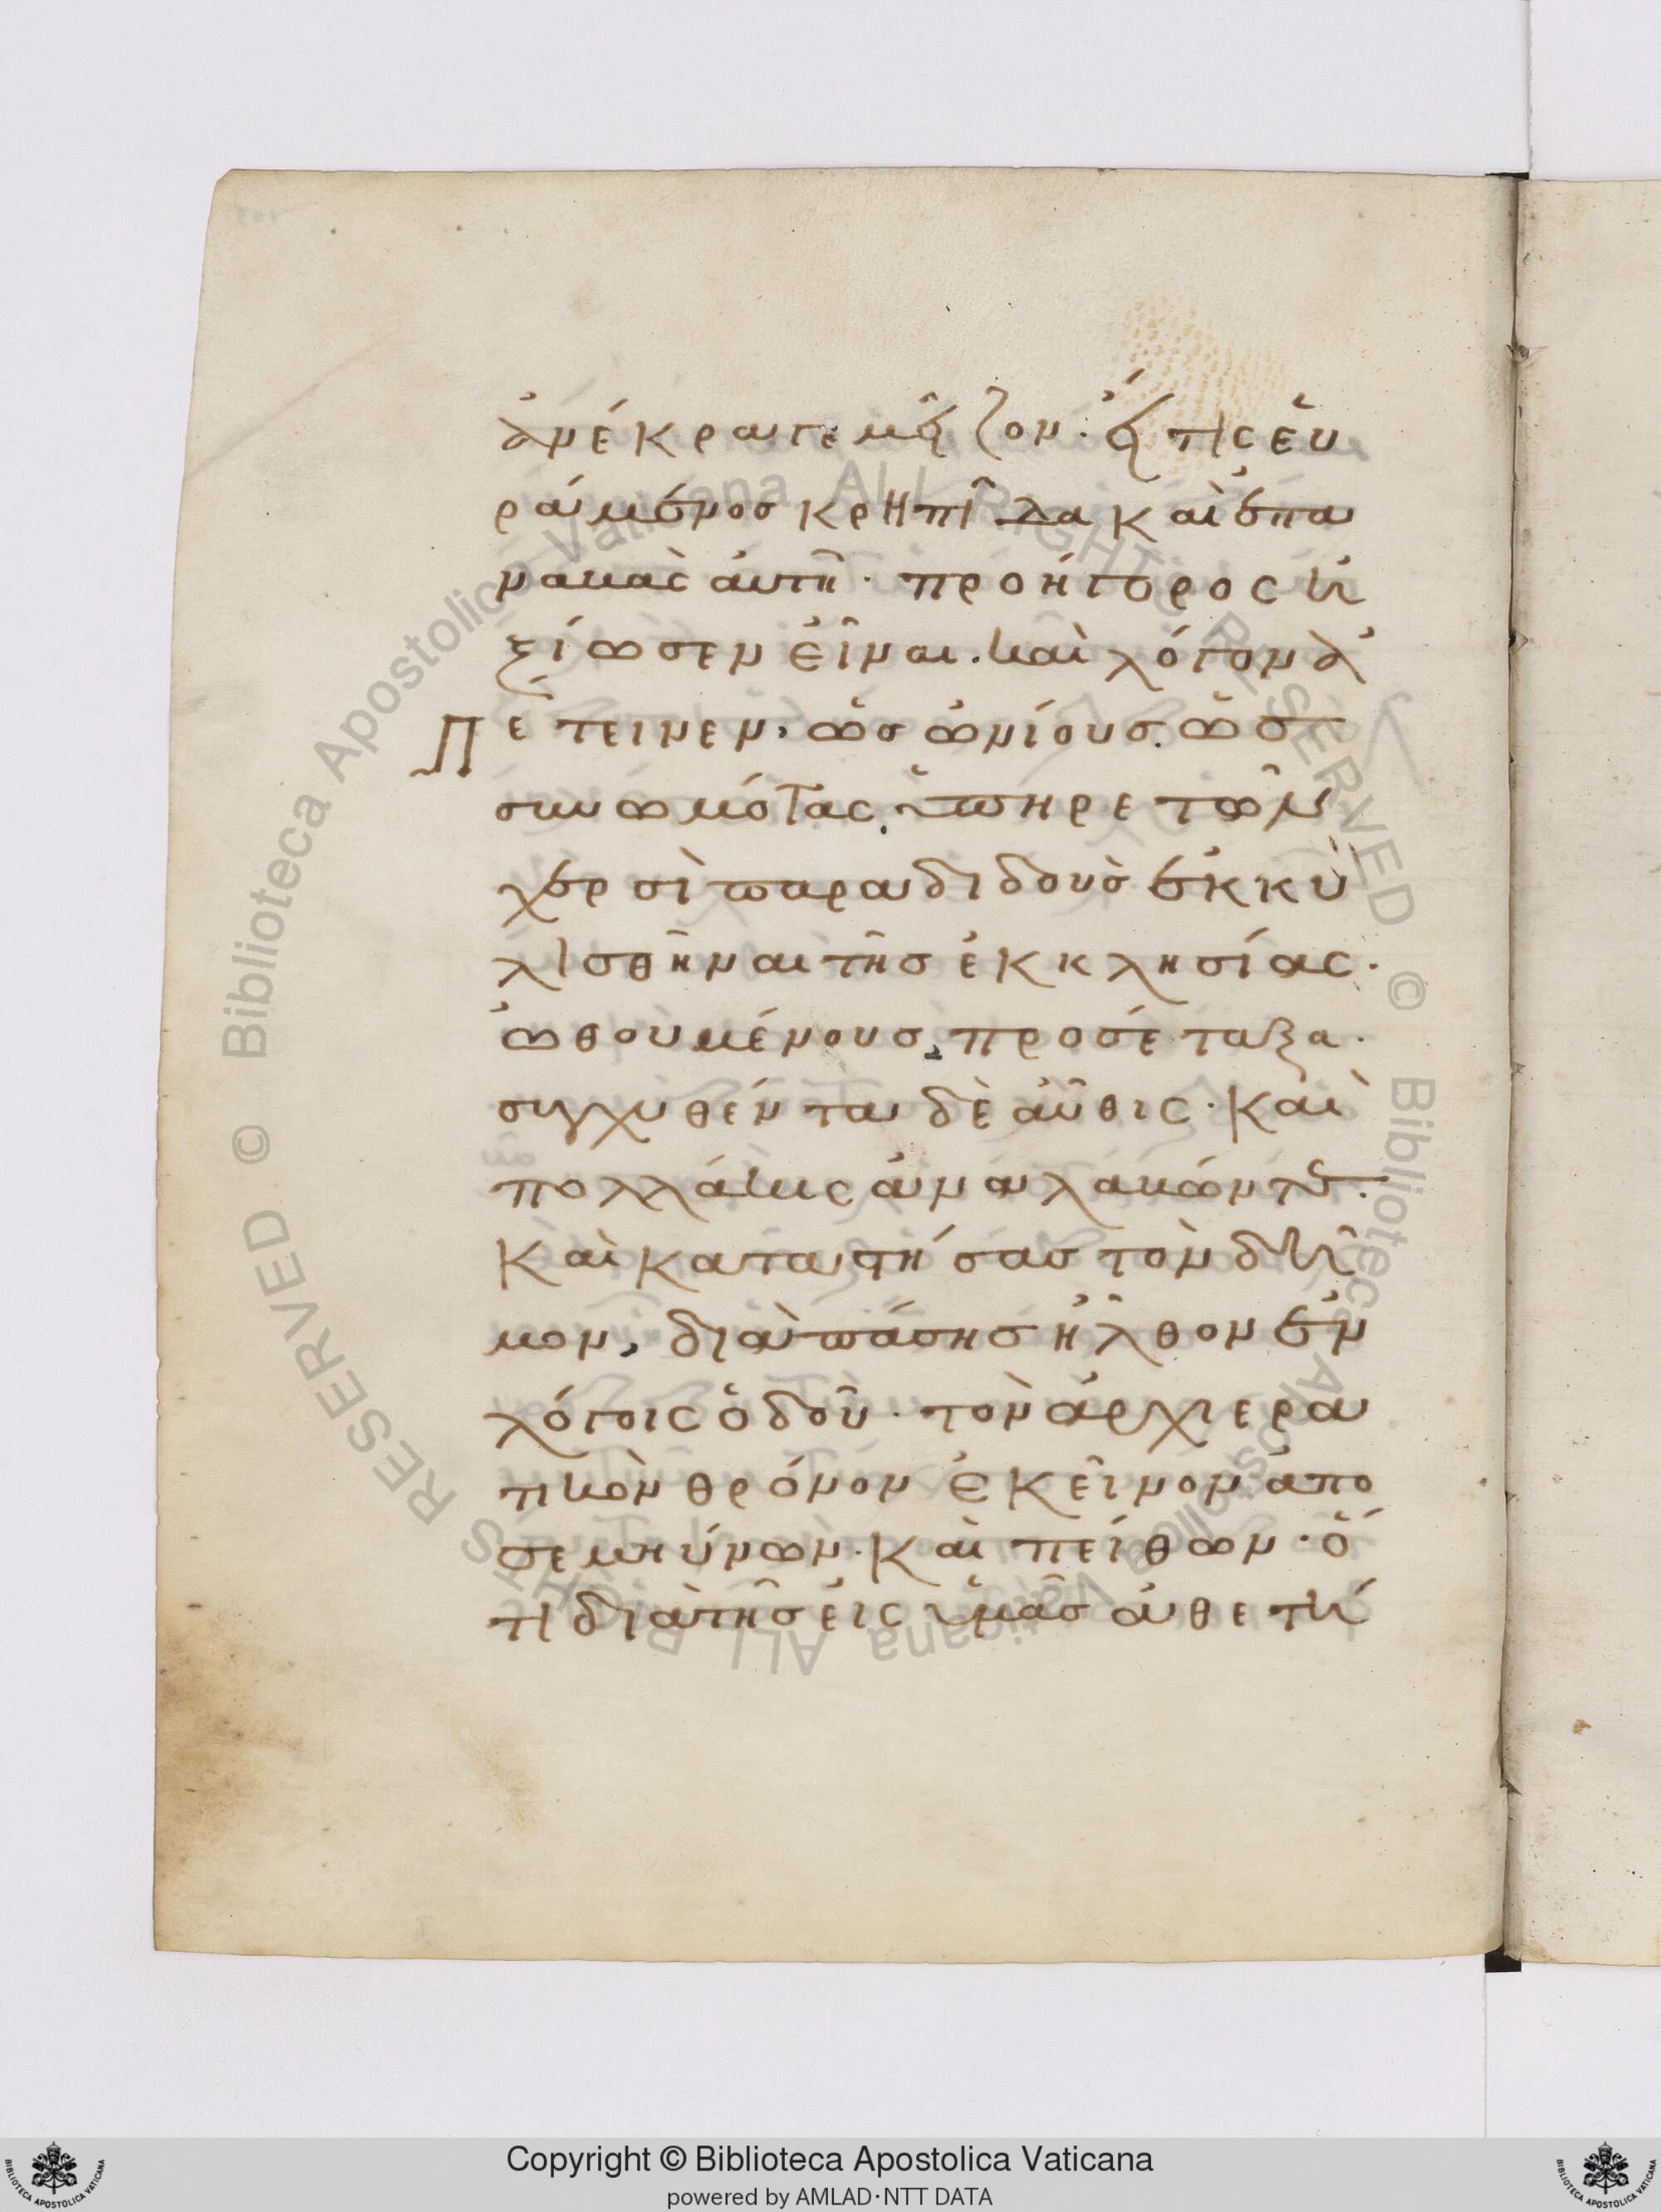 ἀνέκραγε μεῖζον· εἴ τις εὐ
ράμενος κρηπῖδα καὶ ἐπα
νακὰς αὐτῆ· προήγορος ἠ
ξίωσεν εἶναι. καὶ λόγον ἀ
πέτεινεν, ὡς ὠνίους. ὡς
συνωμότας, ὑπηρετῶν
χερσὶ παραδιδοὺς ἐκκυ
λισθῆναι τῆς ἐκκλησίας.
ὠθουμένους, προσέταξα.
συγχυθέντα δὲ αὖθις· καὶ
πολλάκις ἀναλακών τε.
καὶ καταστήσας τὸν δῆ
μον, διὰ πάσης ἦλθον ἐν
λόγοις ὁδοῦ· τὸν ἀρχιερα
τικὸν θρόνον ἐκεῖνον ἀπο
σεμνύνων. καὶ πείθων· ὅ
τι διὰ τῆς εἰς ὑμᾶς ἀθετή
Copyright © Biblioteca Apostolica Vaticana
powered by AMLAD·NTT DATA